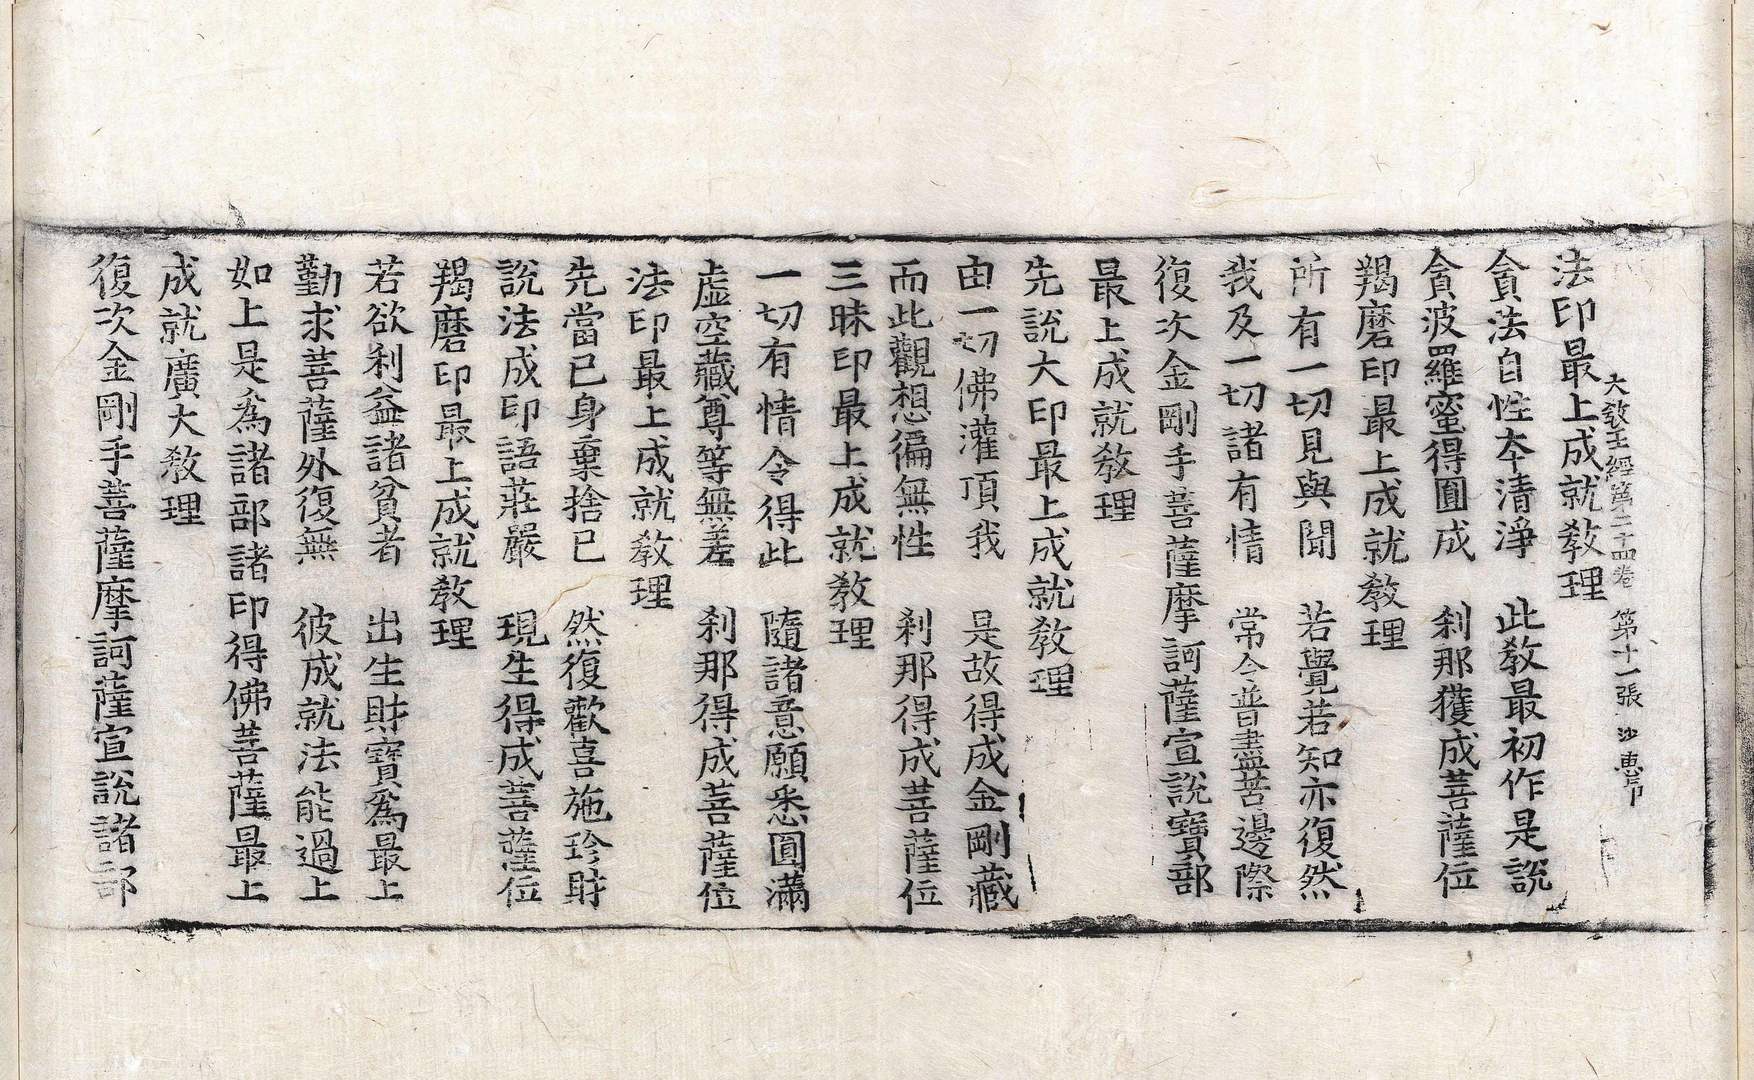 法印最上成就教理
大教王經第二十四卷　第十一張　沙
貪法自性本清淨　此教最初作是說
貪波羅蜜得圓成　刹那獲成菩薩位
羯磨印最上成就教理
所有一切見與聞　若覺若知亦復然
我及一切諸有情　常令普盡苦邊際
復次金剛手菩薩摩訶薩宣說寶部
最上成就教理
先說大印最上成就教理
由一切佛灌頂我　是故得成金剛藏
而此觀想徧無性　刹那得成菩薩位
三昧印最上成就教理
一切有情令得此　隨諸意願悉圓滿
虛空藏尊等無差　刹那得成菩薩位
法印最上成就教理
先當已身棄捨已　然復歡喜施珍財
說法成印語莊嚴　現生得成菩薩位
羯磨印最上成就教理
若欲利益諸貧者　出生財寶爲最上
勤求菩薩外復無　彼成就法能過上
如上是爲諸部諸印得佛菩薩最上
成就廣大教理
復次金剛手菩薩摩訶薩宣說諸部